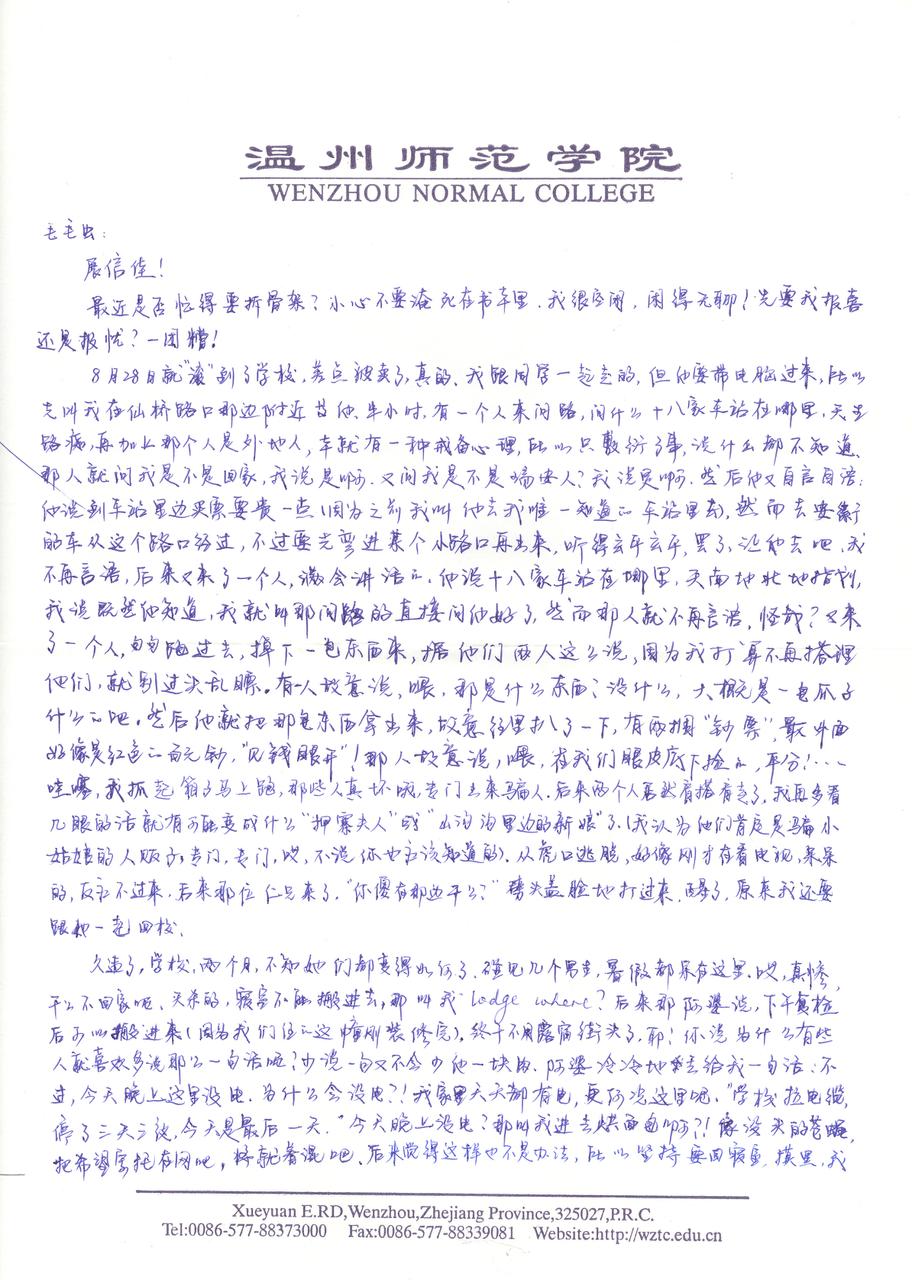 温州师范学院
WENZHOU NORMAL COLLEGE
毛毛虫:
展信佳!
最近是否忙得要拆骨架?小心不要淹死在书车里.我很空闲,闲得无聊!先要我报喜
还是报忧?一团糟!
8月28日就"滚"到了学校,差点被卖了,真的.我跟同学一起走的,但他要带电脑过来,所以
先叫我在仙桥路口那边附近等他.半小时,有一个人来问路,问什么十八家车站在哪里,天生
路痴,再加上那个人是外地人,本就有一种戒备心理,所以只敷衍了事,说什么都不知道.
那人就问我是不是回家,我说是啊.又问我是不是瑞安人?我说是啊.然后他又自言自语:
他说到车站里边买票要贵一点(因为之前我叫他去我唯一知道的车站里去),然而去安徽
的车从这个路口经过,不过要先弯进某个小路口再出来,听得云乎云乎,罢了,让他去吧.我
不再言语,后来又来了一个人,满会讲话的.他说十八家车站在哪里,天南地北地指划,
我说既然他知道,我就叫那问路的直接问他好了,然而那人就不再言语,怪哉?又来
了一个人,匆匆跑过去,掉下一包东西来,据他们两人这么说,因为我打算不再搭理
他们,就别过头乱瞟.有一人故意说,喂,那是什么东西?没什么,大概是一包瓜子
什么的吧.然后他就把那包东西拿出来,故意往里扒了一下,有两捆"钞票",最外面
好像是红色的百元钞,"见钱眼开"!那人故意说,喂,在我们眼皮底下捡的,平分!...
哇噻,我抓起箱子马上跑,那些人真坏呢,专门出来骗人.后来两个人居然肩搭肩走了,我再多看
几眼的话就有可能变成什么"押寨夫人"或"山沟沟里边的新娘"了.(我认为他们肯定是骗小
姑娘的人贩子,专门,专门,哎,不说你也应该知道的).从虎口逃脱,好像刚才在看电视,呆呆
的,反应不过来.后来那位仁兄来了,"你傻在那边干么?"劈头盖脸地打过来.曝了,原来我还要
跟她一起回校.
久违了,学校,两个月,不知她们都变得如何了.碰见几个男生,暑假都呆在这里.哎,真惨,
干么不回家呢.天杀的,寝室不能搬进去,那叫我lodge where?后来那阿婆说,下午复检
后可以搬进来(因为我们住的这幢刚装修完).终于不用露宿街头了.耶!你说为什么有些
人就喜欢多说那么一句话呢?少说一句又不会少他一块肉.阿婆冷冷地甩给我一句话:不
过,今天晚上这里没电.为什么会没电?!我家里天天都有电,更何况这里呢."学校拉电缆,
停了三天三夜,今天是最后一天."今天晚上没电?那叫我进去烘面包啊?!像没头的苍蝇,
把希望寄托在网吧,将就着混吧.后来觉得这样也不是办法,所以坚持要回寝室,摸黑,我
Xueyuan E.RD,Wenzhou,Zhejiang Province,325027,P.R.C.
Tel:0086-577-88373000 Fax:0086-577-88339081 Website:http://wztc.edu.cn